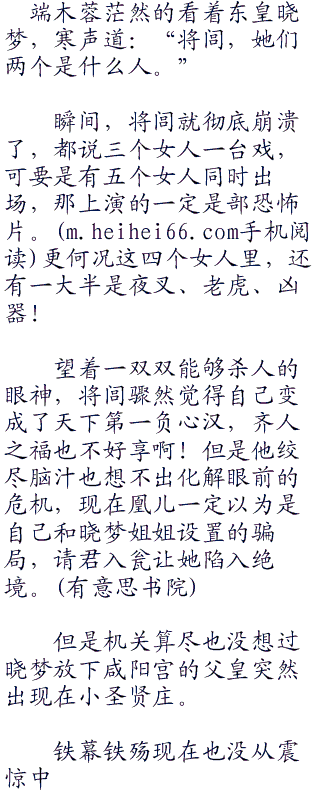 端木蓉茫然的看着东皇晓
梦，寒声道：“将闾，她们
两个是什么人。”
瞬间，将闾就彻底崩溃
了，都说三个女人一台戏，
可要是有五个女人同时出
场，那上演的一定是部恐怖
片。(m.heihei66.com手机阅
读)更何况这四个女人里，还
有一大半是夜叉、老虎、凶
器！
望着一双双能够杀人的
眼神，将闾骤然觉得自己变
成了天下第一负心汉，齐人
之福也不好享啊！但是他绞
尽脑汁也想不出化解眼前的
危机，现在凰儿一定以为是
自己和晓梦姐姐设置的骗
局，请君入瓮让她陷入绝
境。(有意思书院)
但是机关算尽也没想过
晓梦放下咸阳宫的父皇突然
出现在小圣贤庄。
铁幕铁殇现在也没从震
惊中